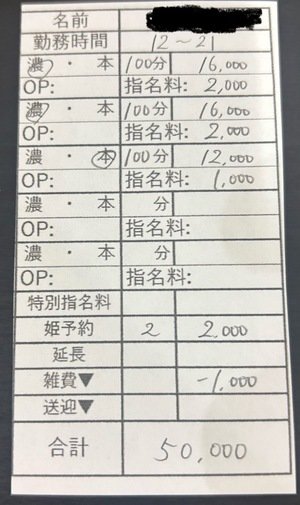 名前
勤務時間 12〜21
濃・本 100分 16,000
OP: 指名料: 2,000
濃・本 100分 16,000
OP: 指名料: 2,000
濃・本 100分 12,000
OP: 指名料: 1,000
濃・本 分
OP: 指名料:
濃・本 分
OP: 指名料:
特別指名料
姫予約 2 2,000
延長
雑費▼ -1,000
送迎▼
合計 50,000